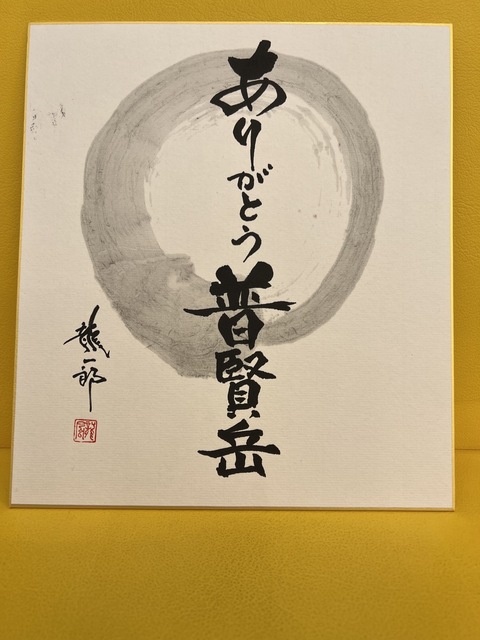 ありがとう普賢岳
龍一郎